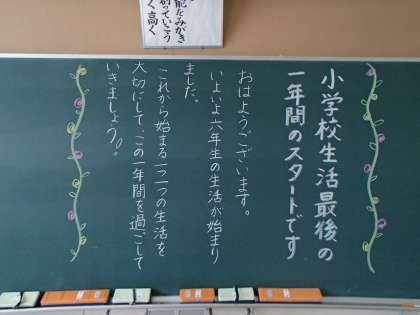 能をみがき
創っていこう
く高く
小学校生活最後の
一年間のスタートです
おはようございます。
いよいよ六年生の生活が始まり
ました。
これから始まる一つ一つの生活を
大切にして、この一年間を過ごして
いきましょう。